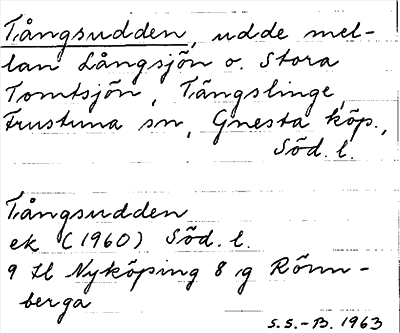 Tångsudden, udde mel-
lan Långsjön o. Stora
Tomtsjön, Tängslinge,
Frustuna sn, Gnesta köp.,
Söd. l.
Tångsudden
ek (1960) Söd. l.
9 H Nyköping 8 g Rönn-
berga
S.S.-B. 1963